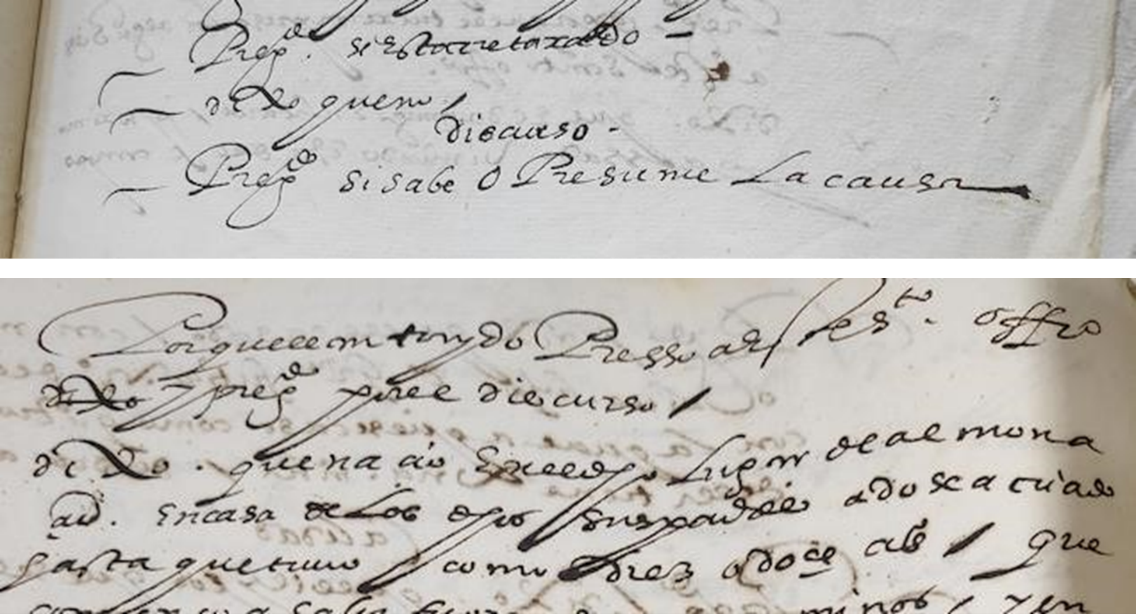 Preg.do si Esta retaxado
dixo que no /
Discurso -
Preg.do si sabe o Presume La causa
Porque ee m traydo Presso a es Ses.to offio
dixo y preg.do por ee discurso /
dixo. que nacio En ee d.ho Lugar de almona
cid. En casa de Los d.hos sus padres a do se a criado
hasta que tuvo como diez o doce as / que